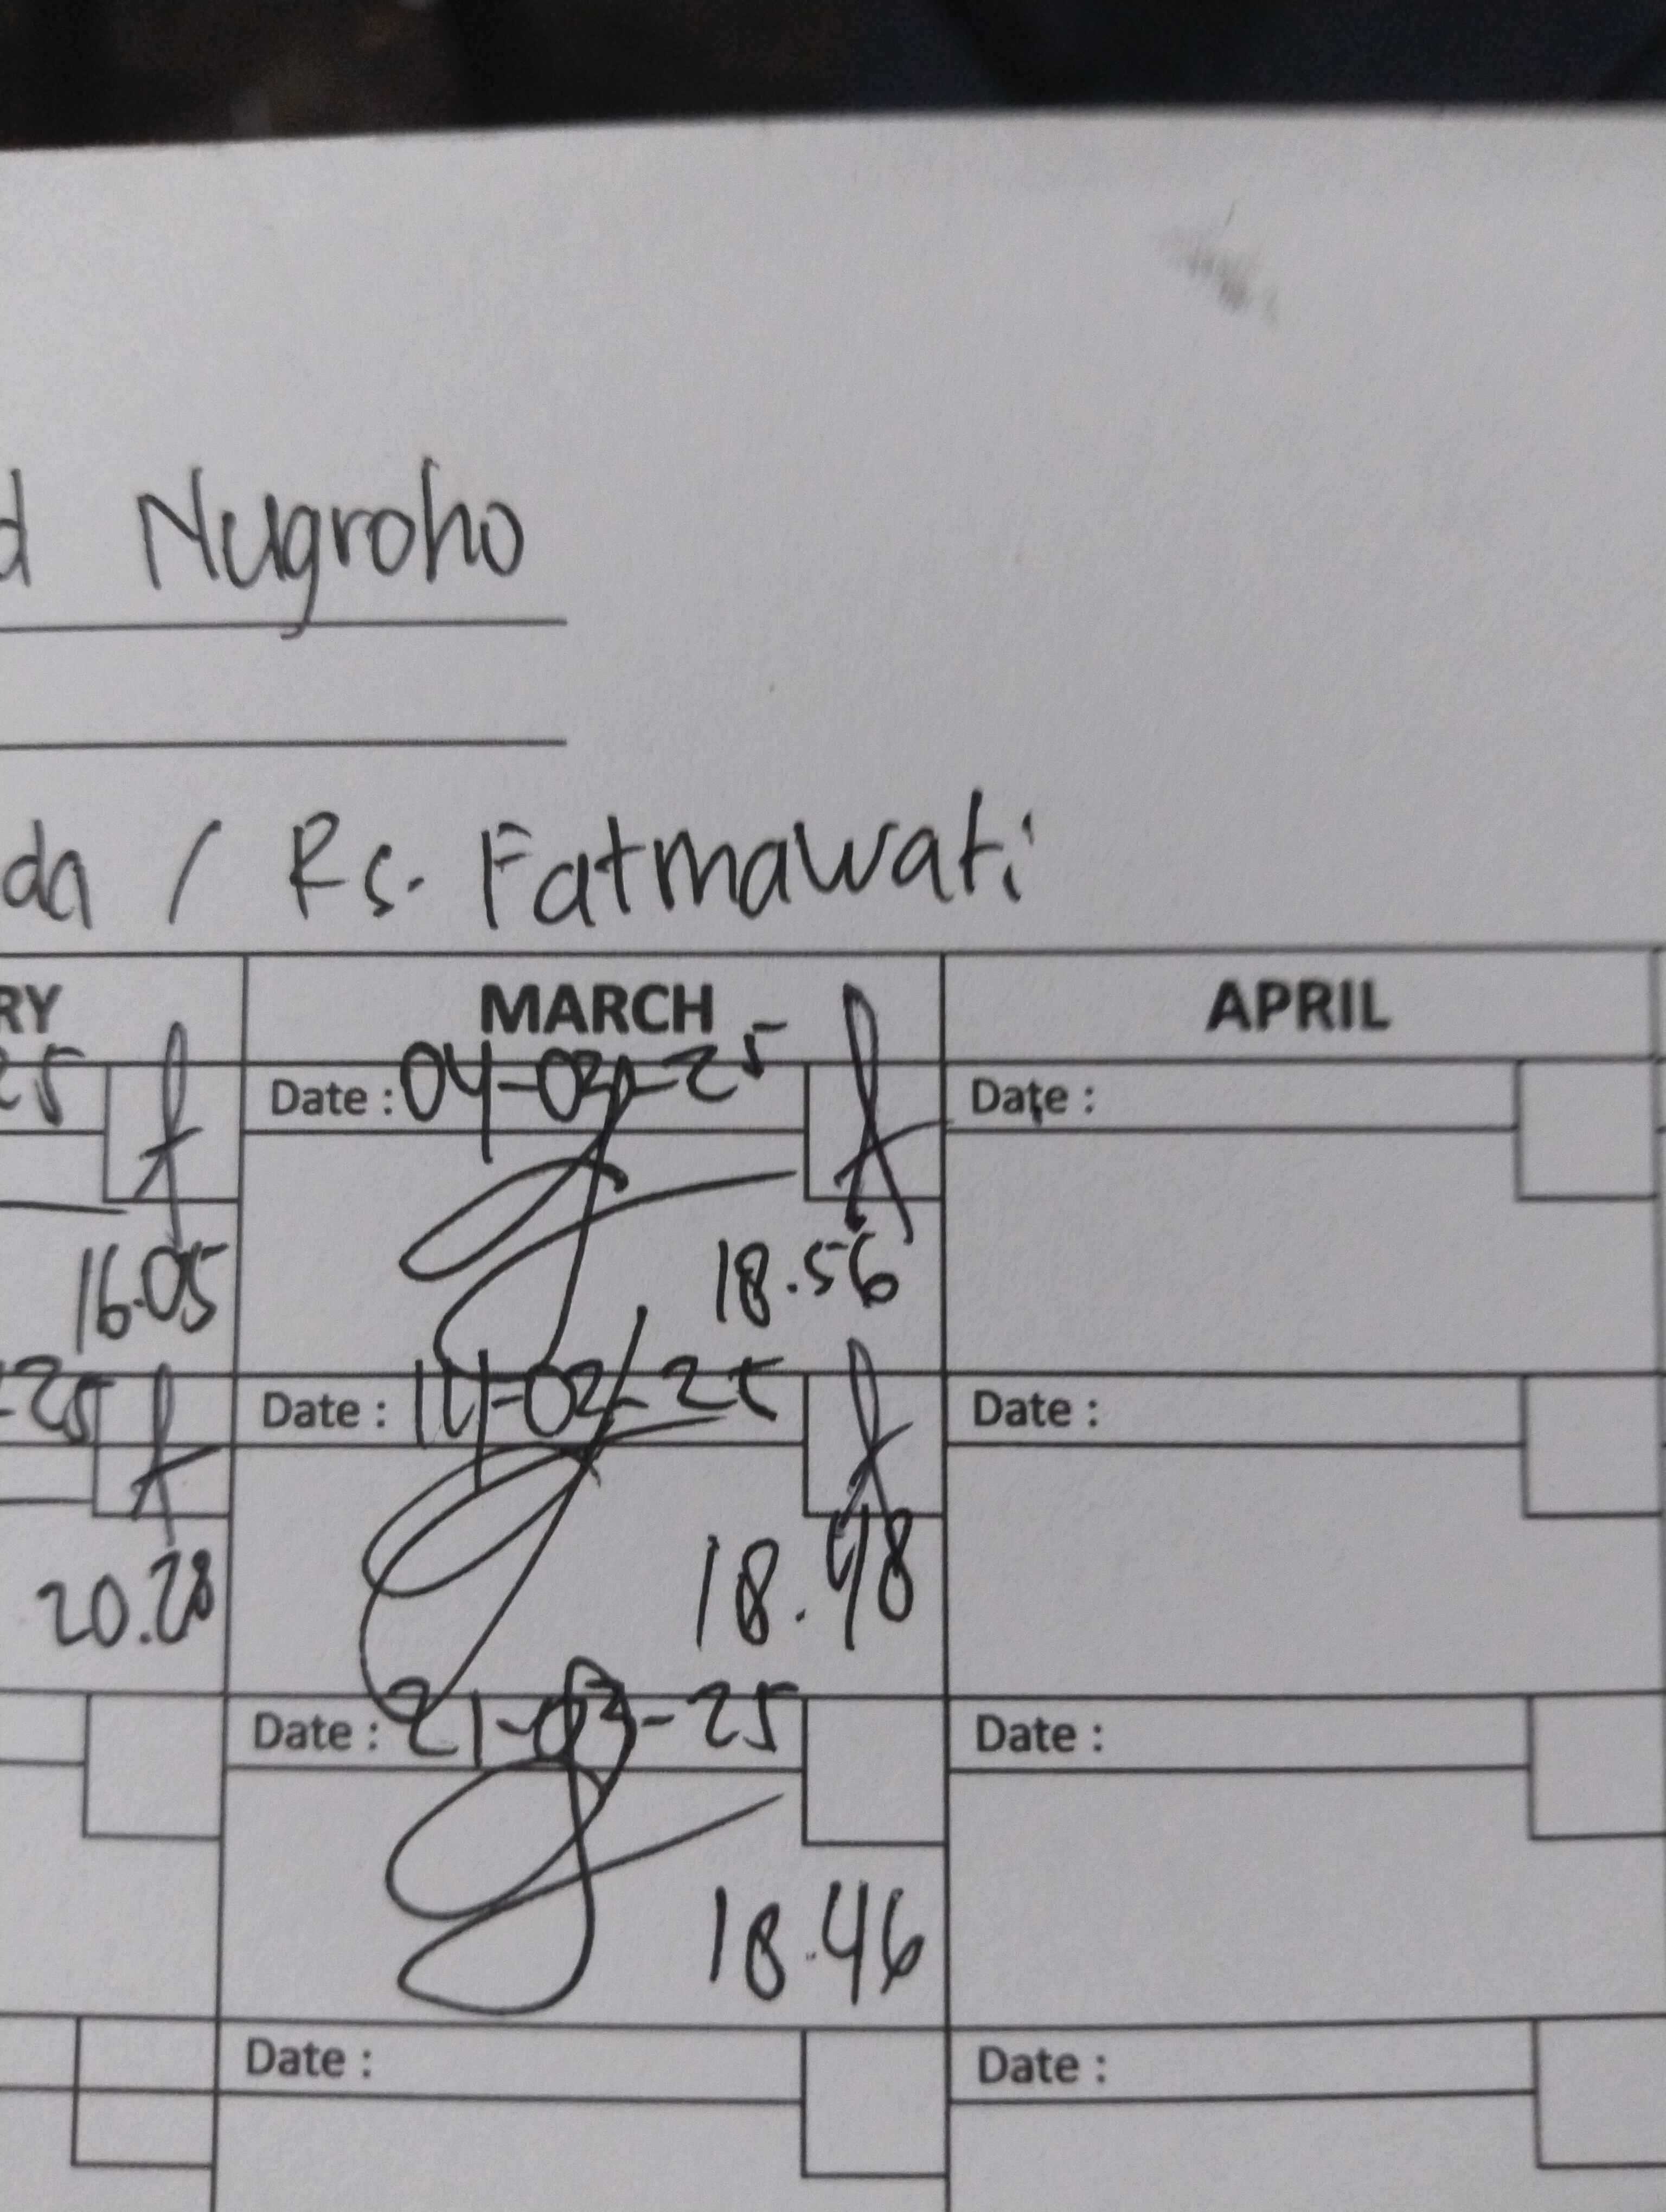 d Nugroho
da / Rs. Fatmawati
RY MARCH APRIL
25 Date : 04-03-25 Date :
16.05 18.56
-25 Date : 14-03-25 Date :
20.28 18.48
Date : 21-03-25 Date :
18.46
Date : Date :